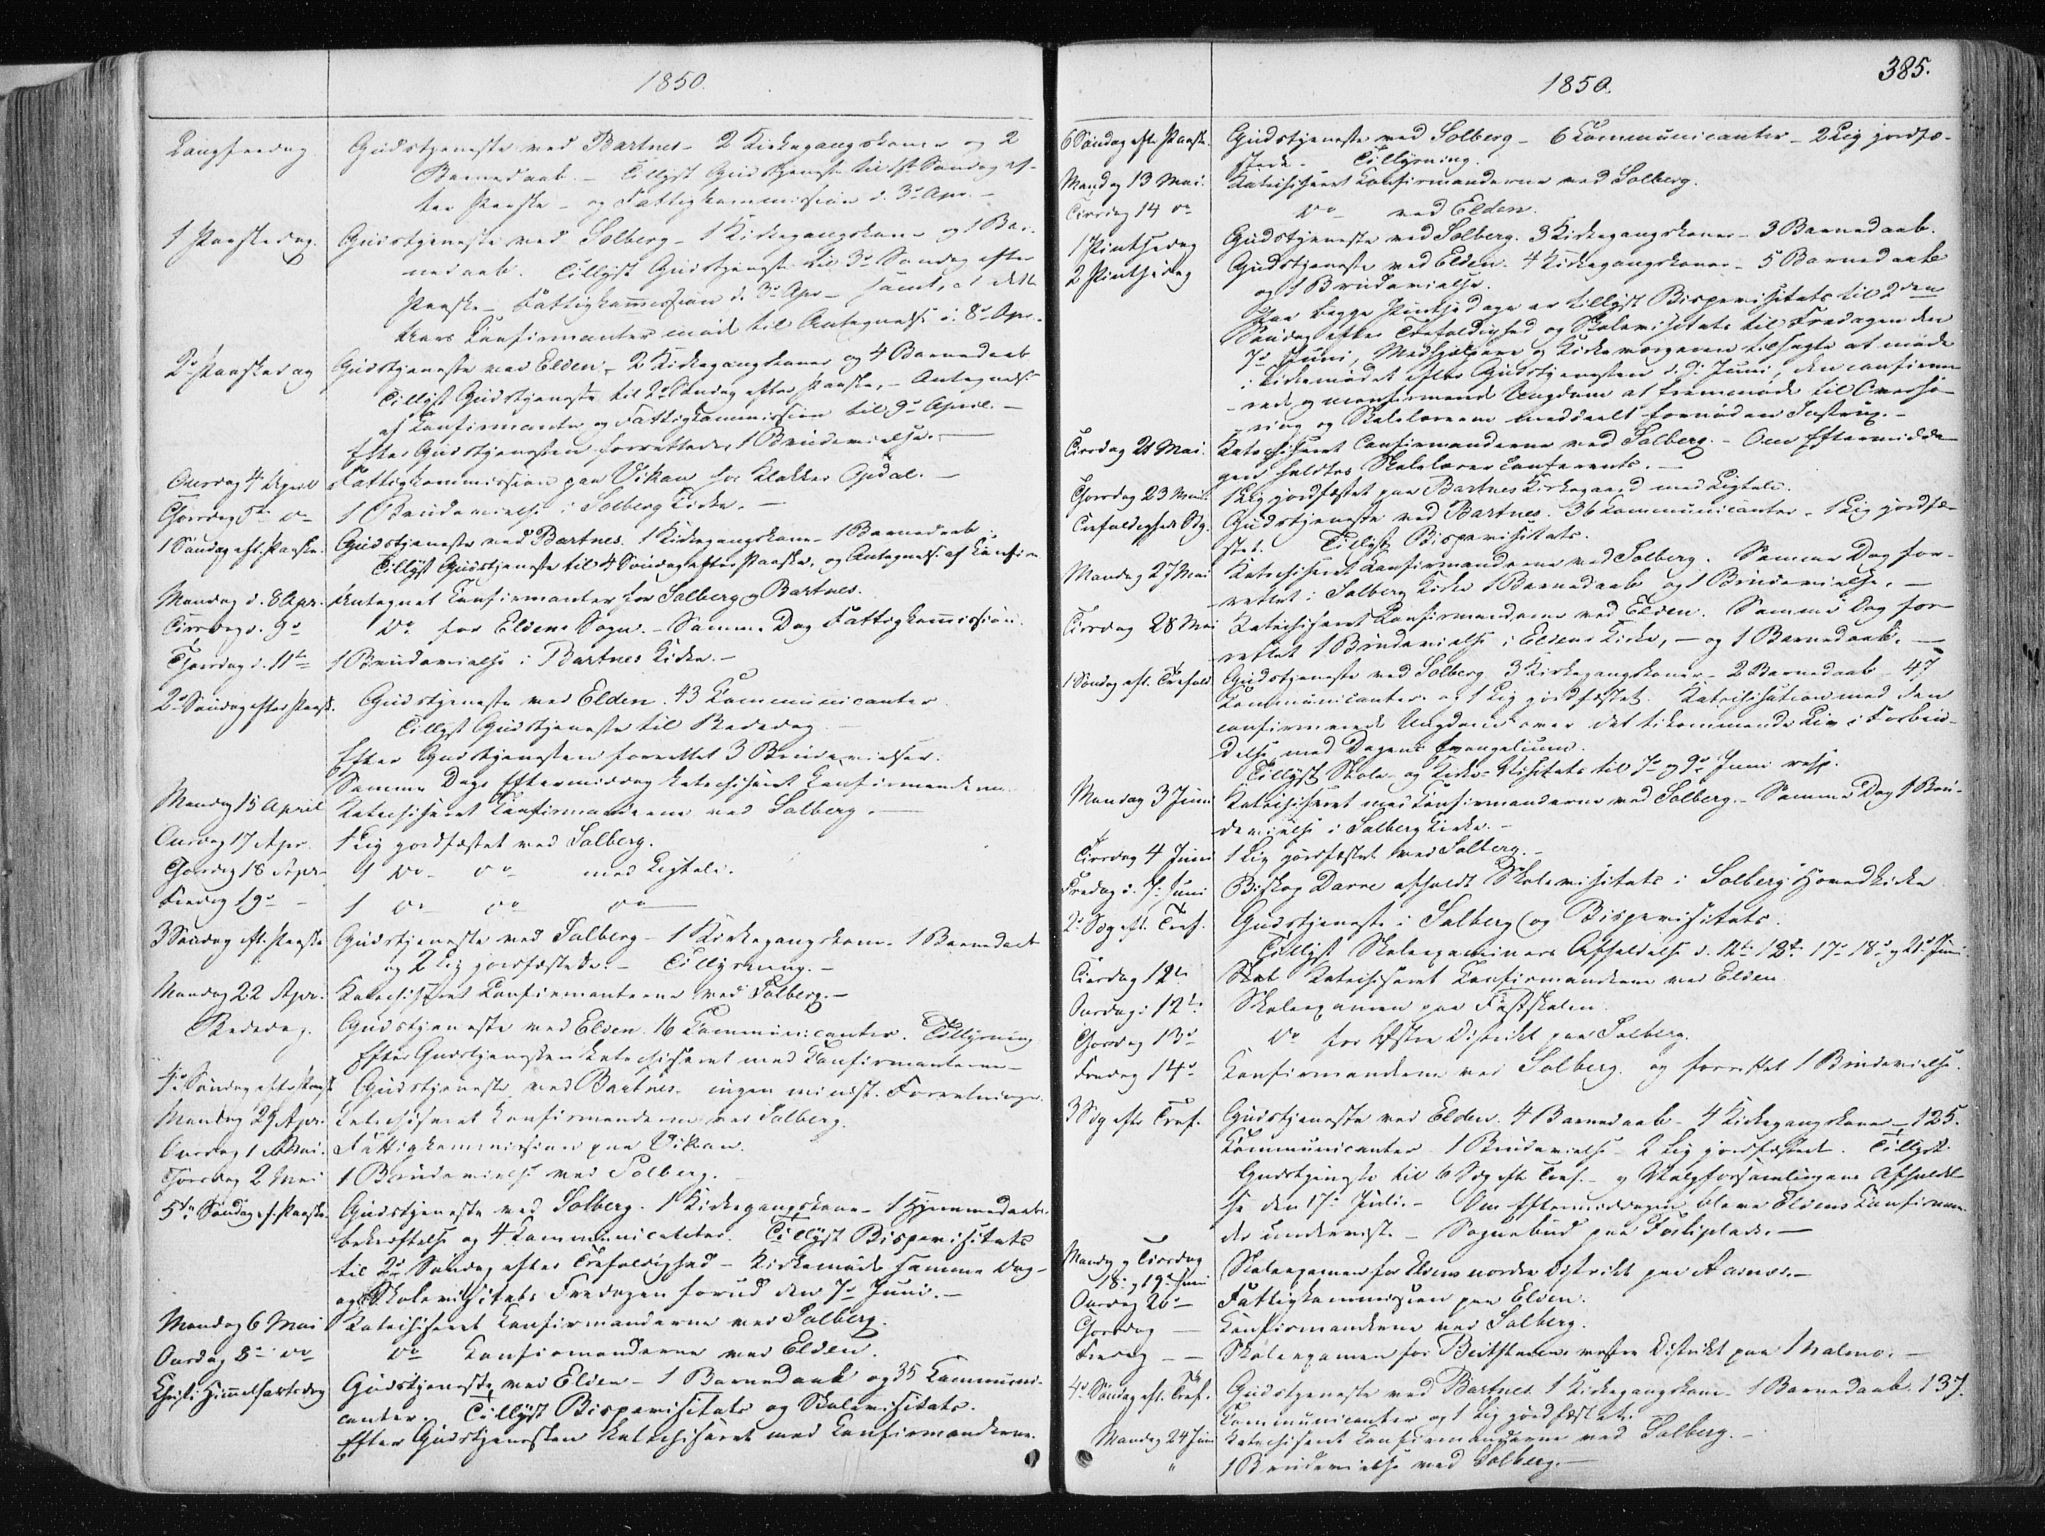 1850.
Langfredag. Gudstjeneste ved Bartnes - 2 Kirkegangskoner og 2
Barnedaab. - Tillyst Gudstjeneste til 1ste Søndag ef-
ter Paaske - og Fattigkommission d. 3d Apr. -
1 Paaskedag. Gudstjeneste ved Solberg - 1 Kirkegangskone og 1 Bar-
nedaab. Tillyst Gudstjeneste til 3d Søndag efter
Paaske - Fattigkommission d. 3d Apr - samt, at
Confirmanter møde til Antegnelse d. 8d Apr.
2d Paaskedag Gudstjeneste ved Elden, 2 Kirkegangskoner og 4 Barnedaab
Tillyst Gudstjeneste til 2d Søndag efter Paaske, - Antegnelse
af Confirmanter og Fattigkommission til 9d April. -
Efter Gudstjenesten forrettedes 1 Brudevielse. -
Onsdag 4 April Fattigkommission paa Vikan for Klokker Opdal. -
Thorsdag 5te do 1 Brudevielse i Solberg Kirke. -
1 Søndag eft. Paaske. Gudstjeneste ved Bartnes. 1 Kirkegangskone - 1 Barnedaab.
Tillyst Gudstjeneste til 4 Søndag efter Paaske, og Antegnelse af Confirm
Mandag d. 8 Apr. Antegnet Confirmanter for Solberg og Bartnes.
Tirsdag d. 9d Do for Eldens Sogn. - Samme Dag Fattigkommission.
Thorsdag d. 11te 1 Brudevielse i Bartnes Kirke. -
2d Søndag efter Paask. Gudstjeneste ved Elden. 43 Communicanter
Tillyst Gudstjeneste til Bededag. -
Efter Gudstjenesten forrettet 3 Brudevielser.
Samme Dags Eftermiddag katechiseret Confirmanderne.
Mandag 15 April Katechiseret Confirmanderne ved Solberg. -
Onsdag 17 Apr. 1 Lig jordfæstet ved Solberg.
Thorsdag 18 Apr - 1 Do - do med Ligtale.
Fredag 19d - 1 do do do
3 Søndag eft. Paaske Gudstjeneste ved Solberg - 1 Kirkegangskone - 1 Barnedaab
og 2 Lig jordfæstede. - Tillysning. -
Mandag 22 Apr. Katechiseret Confirmanterne ved Solberg. -
Bededag. Gudstjeneste ved Elden. 16 Communicanter. Tillysning
Efter Gudstjenesten katechiseret med Confirmanterne -
4d Søndag efter Paask. Gudstjeneste ved Bartnes. ingen minist. Forretninger.
Mandag 29 Apr. Katechiseret Confirmanderne ved Solberg.
Onsdag 1 Mai. Fattigkommission paa Vikan.
Thorsdag 2 Mai 1 Brudevielse ved Solberg.
5te Søndag e. Paaske. Gudstjeneste ved Solberg. 1 Kirkegangskone - 1 Hjemmedaabs
bekræftelse og 4 Communicanter. Tillyst Bispevisitats
til 2d Søndag efter Trefoldighed - Kirkemøde samme Dag -
og Skolevisitats Fredagen forud den 7d Juni. -
Mandag 6 Mai Katechiseret Confirmanderne ved Solberg.
Onsdag 8d do do Confirmanderne ved Elden.
Christi Himmelfartsdag Gudstjeneste ved Elden - 1 Barnedaab og 35 Communi-
canter. Tillyst Bispevisitats og Skolevisitats.
Efter Gudstjenesten Katechiseret med Confirmanderne.
385.
1850.
6 Søndag eft. Paaske. Gudstjeneste ved Solberg - 6 Communicanter - 2 Lig jordfæ-
stede - Tillysning.
Mandag 13 Mai. Katechiseret Confirmanderne ved Solberg.
Tirsdag 14 do Do ved Elden.
1 Pintsedag Gudstjeneste ved Solberg. 3 Kirkegangskoner - 3 Barnedaab.
2 Pintsedag Gudstjeneste ved Elden. 4 Kirkegangskoner - 5 Barnedaab
og 1 Brudevielse.
Paa begge Pintsedage er tillyst Bispevisitats til 2den
Søndag efter Trefoldighed og Skolevisitats til Fredagen den
7d Juni, Medhjælpere og Kirkeværgerne tilsagte at møde
i Kirkemødet efter Gudstjenesten d. 9d Juni, den confirme-
rede og Ungdom at fremmøde til Overhø-
ring og Skolelærerne meddeelt fornøden Instrux. -
Tirsdag 21 Mai. Katechiseret Confirmanderne ved Solberg. - Om Eftermidda-
gen holdtes Skolelærerconferents. -
Thorsdag 23 Mai. 1 Lig jordfæstet paa Bartnes Kirkegaard med Ligtale.
Trefoldigheds Sdg. Gudstjeneste ved Bartnes. 36 Communicanter. 1 Lig jordfæ-
stet. Tillyst Bispevisitats.
Mandag 27 Mai Katechiseret Confirmanderne ved Solberg. Samme Dag for-
rettet i Solberg Kirke 1 Barnedaab og 1 Brudevielse. -
Tirsdag 28 Mai Katechiseret Confirmanderne ved Elden. Samme Dag for-
rettet 1 Brudevielse i Eldens Kirke, - og 1 Barnedaab. -
1 Søndag eft. Trefold. Gudstjeneste ved Solberg 3 Kirkegangskoner - 2 Barnedaab - 47
Communicanter og 1 Lig jordfæstet. Katechisation med den
confirmerede Ungdom over det tilkommende Liv i Forbin-
delse med Dagens Evangelium.
Tillyst Skole- og Kirke-Visitats til 7d og 9d Juni resp.
Mandag 3 Juni Katechiseret med Confirmanderne ved Solberg. - Samme Dag 1 Bru-
devielse i Solberg Kirke. -
Tirsdag 4 Juni 1 Lig jordfæstet ved Solberg. -
Fredag d. 7d Juni Biskop Darre afholdt Skolevisitats i Solberg Hovedkirke
2d Sdg eft. Tref. Gudstjeneste i Solberg og Bispevisitats.
Tillyst Skoleexaminers Afholdelse d. 12te 13de 17d 18d og 21d Juni.
Tirsdag Katechiseret Confirmanderne ved Elden.
Onsdag 12te Skoleexamen paa Fastskolen.
Thorsdag 13d Do for Østre Distrikt paa Solberg.
Fredag 14d Confirmanderne ved Solberg. og forrettet 1 Brudevielse.
3 Sdg efter Tref. Gudstjeneste ved Elden. 4 Barnedaab - 4 Kirkegangskoner - 125.
Communicanter - 1 Brudevielse - 2 Lig jordfæstede. Tillyst
Gudstjeneste til 6 Sdg eft. Tref. - og Valgforsamlingens Afholdel-
se den 17d Juli. - Om Eftermiddagen bleve Eldens Confirman-
der underviste - Sognebud paa -
Mandag og Tirsdag
18 og 19 Juni Skoleexamen for Eldens nordre Distrikt paa -
Onsdag 20 - Fattigkommission paa Elden.
Thorsdag - Confirmanderne ved Solberg.
Fredag - - Skoleexamen for Beitstadens vestre Distrikt paa Malmo. -
4d Søndag eft. Tref. Gudstjeneste ved Bartnes. 1 Kirkegangskone - 1 Barnedaab. 137.
Communicanter og 1 Lig jordfæstet.
Mandag 24 Juni Katechiseret Confirmanderne ved Solberg. -
" 1 Brudevielse ved Solberg. -